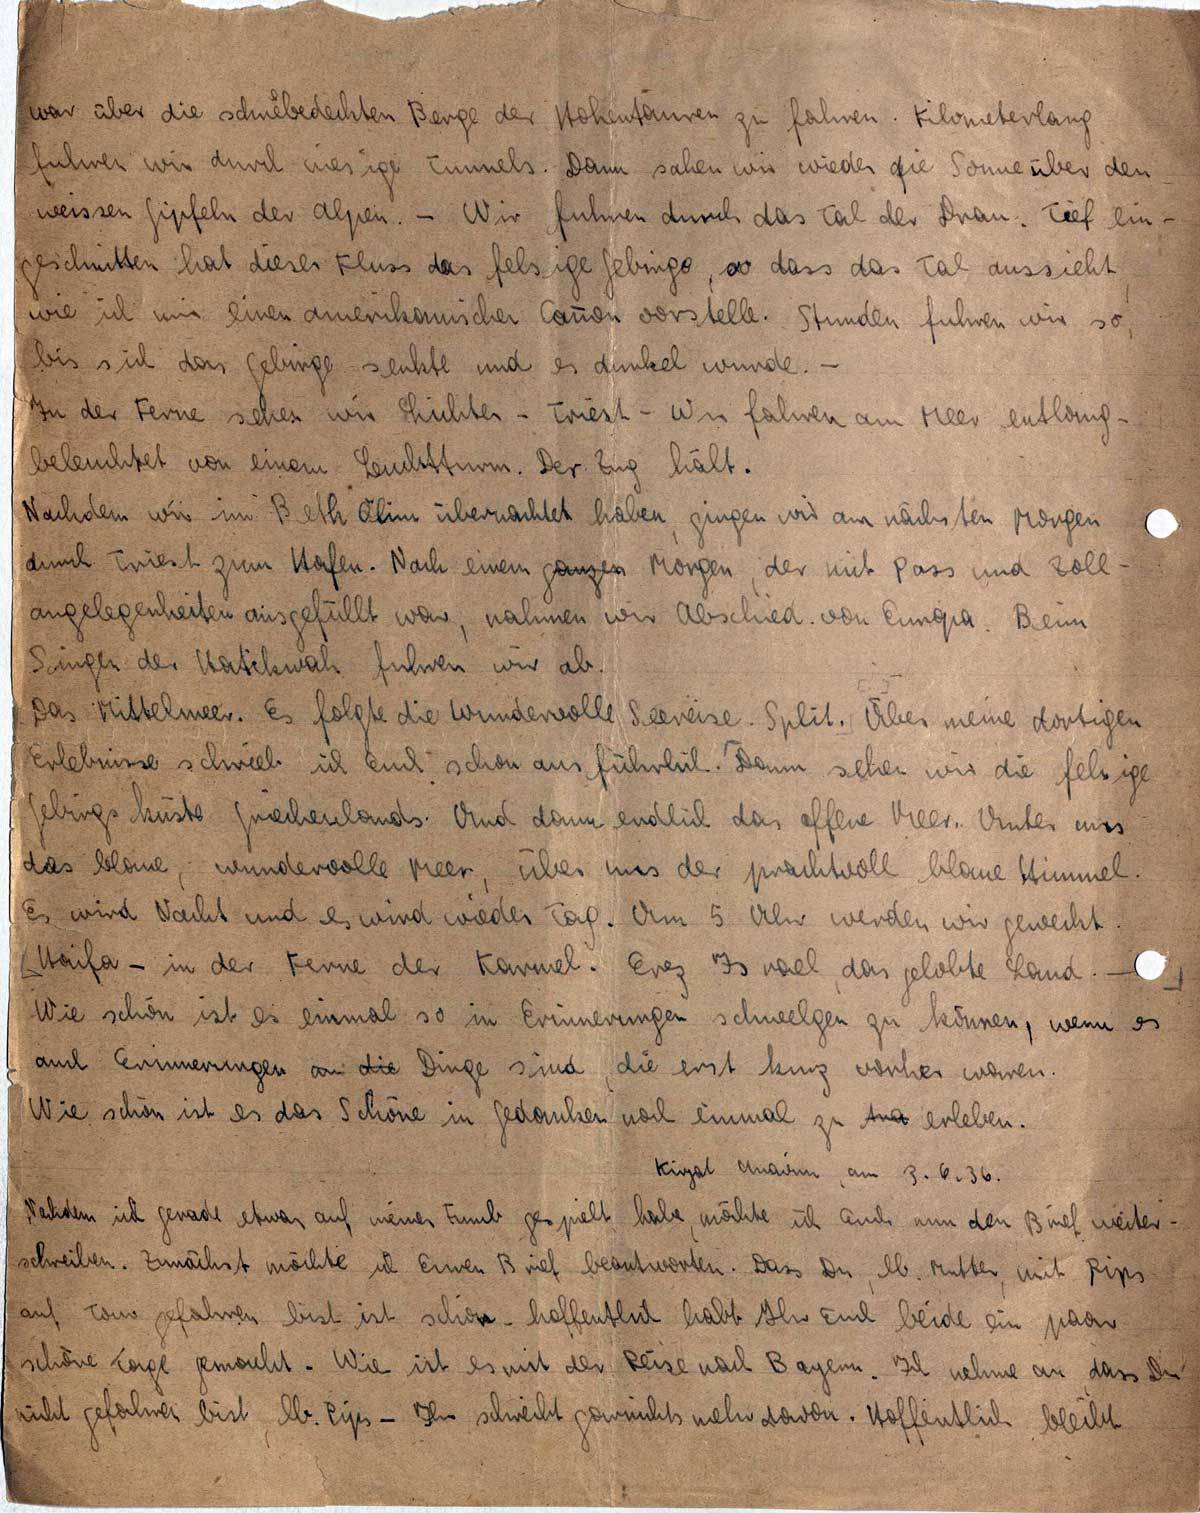 war über die schneebedeckten Berge der Hohentauren zu fahren. Kilometerlang
fuhren wir durch riesige Tunnels. Dann sahen wir wieder die Sonne über den
weissen Gipfeln der Alpen. – Wir fuhren durch das Tal der Drau. Tief ein-
geschnitten hat dieser Fluss das felsige Gebirge, so dass das Tal aussieht
wie ich mir einen amerikanischen Cañon vorstelle. Stunden fuhren wir so,
bis sich das Gebirge senkte und es dunkel wurde. –
In der Ferne sehen wir Lichter – Triest – Wir fahren am Meer entlang –
beleuchtet von einem Leuchtturm. Der Zug hält.
Nachdem wir im Beth Olim übernachtet haben, gingen wir am nächsten Morgen
durch Triest zum Hafen. Nach einem ganzen Morgen, der mit Pass und Zoll-
angelegenheiten ausgefüllt war, nahmen wir Abschied von Europa. Beim
Singen der Hatikwah fuhren wir ab.
Das Mittelmeer. Es folgte die wundervolle Seereise. Split. Über meine dortigen
Erlebnisse schrieb ich Euch schon ausführlich. Dann sehen wir die felsige
Gebirgsküste Griechenlands. Und dann endlich das offene Meer. Unter uns
das blaue, wundervolle Meer, über uns der prachtvoll blaue Himmel.
Es wird Nacht und es wird wieder Tag. Um 5 Uhr werden wir geweckt.
Haifa – in der Ferne der Karmel. Erez Israel, das gelobte Land. –
Wie schön ist es einmal so in Erinnerungen schwelgen zu können, wenn es
auch Erinnerungen an die Dinge sind, die erst kurz vorher waren.
Wie schön ist es das Schöne in Gedanken noch einmal zu erleben.
Kirjat Anavim, am 3.6.36.
Nachdem ich gerade etwas auf meiner gespielt habe, möchte ich Euch nun den Brief weiter-
schreiben. Zunächst möchte ich Euren Brief beantworten. Dass Du, lb. Mutter, mit Pips
auf Tour gefahren bist ist schön – hoffentlich habt Ihr Euch beide ein paar
schöne Tage gemacht. Wie ist es mit der Reise nach Bayern. Ich nehme an, dass Du
nicht gefahren bist, lb. Pips – Ihr schreibt garnichts mehr davon. Hoffentlich bleibt